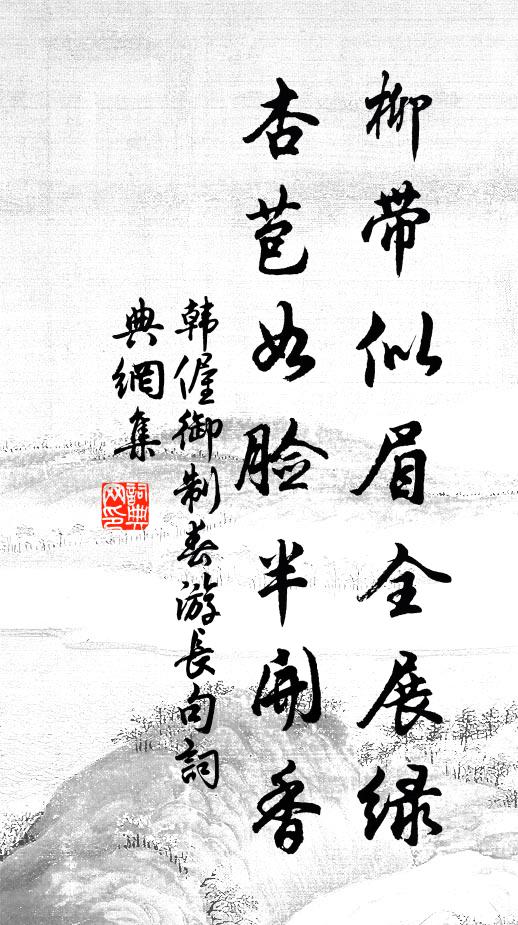 柳带似眉全展绿
杏苞如脸半開香
韩偓御制春游長句詞
典網集
詞典
网印